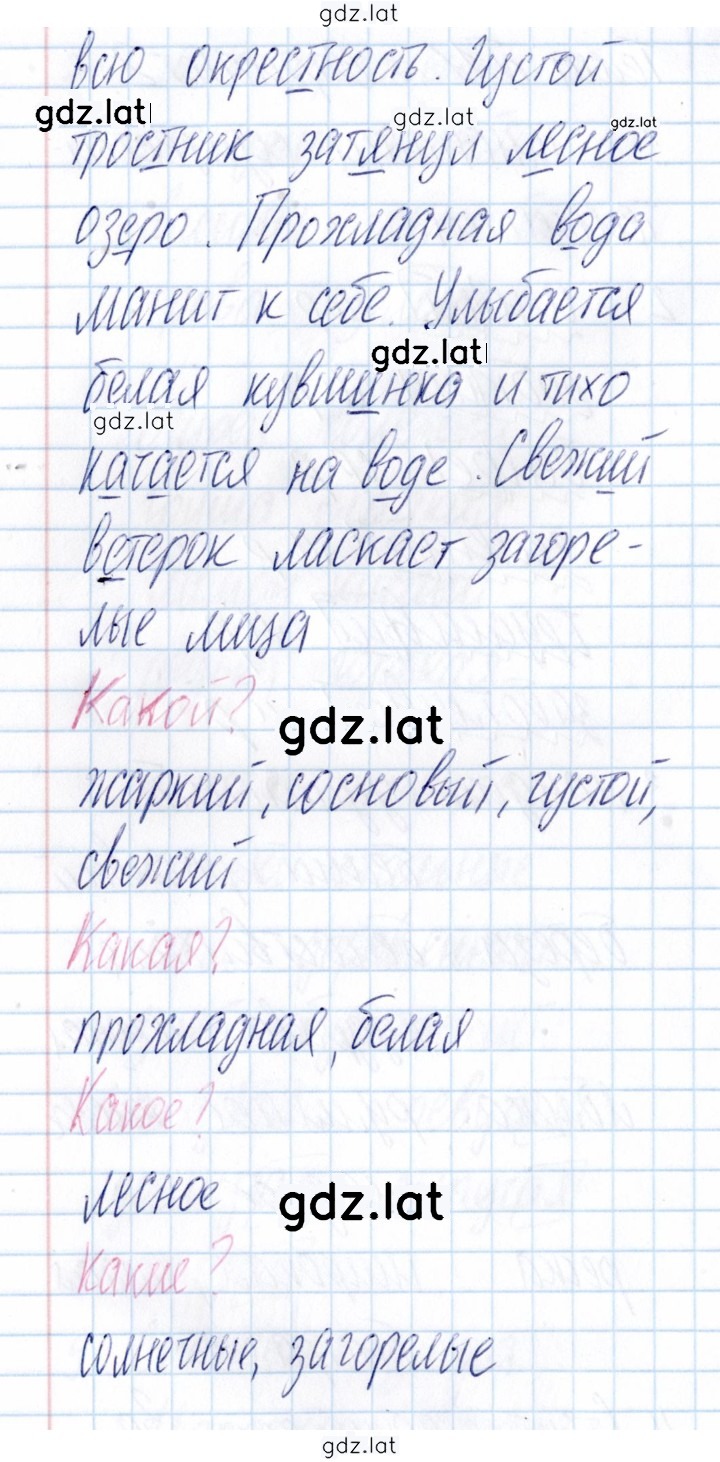 gdz.lat
всю окрестность. Густой
gdz.lat
gdz.lat
gdz.lat
тростник затянул лесное
озеро. Прохладная вода
манит к себе. Улыбается
gdz.lat
белая кувшинка и тихо
gdz.lat
качается на воде. Свежий
ветерок ласкает загоре-
лые лица
Какой?
gdz.lat
жаркий, сосновый, густой,
свежий
Какая?
прохладная, белая
Какое?
лесное
gdz.lat
Какие?
солнечные, загорелые
gdz.lat